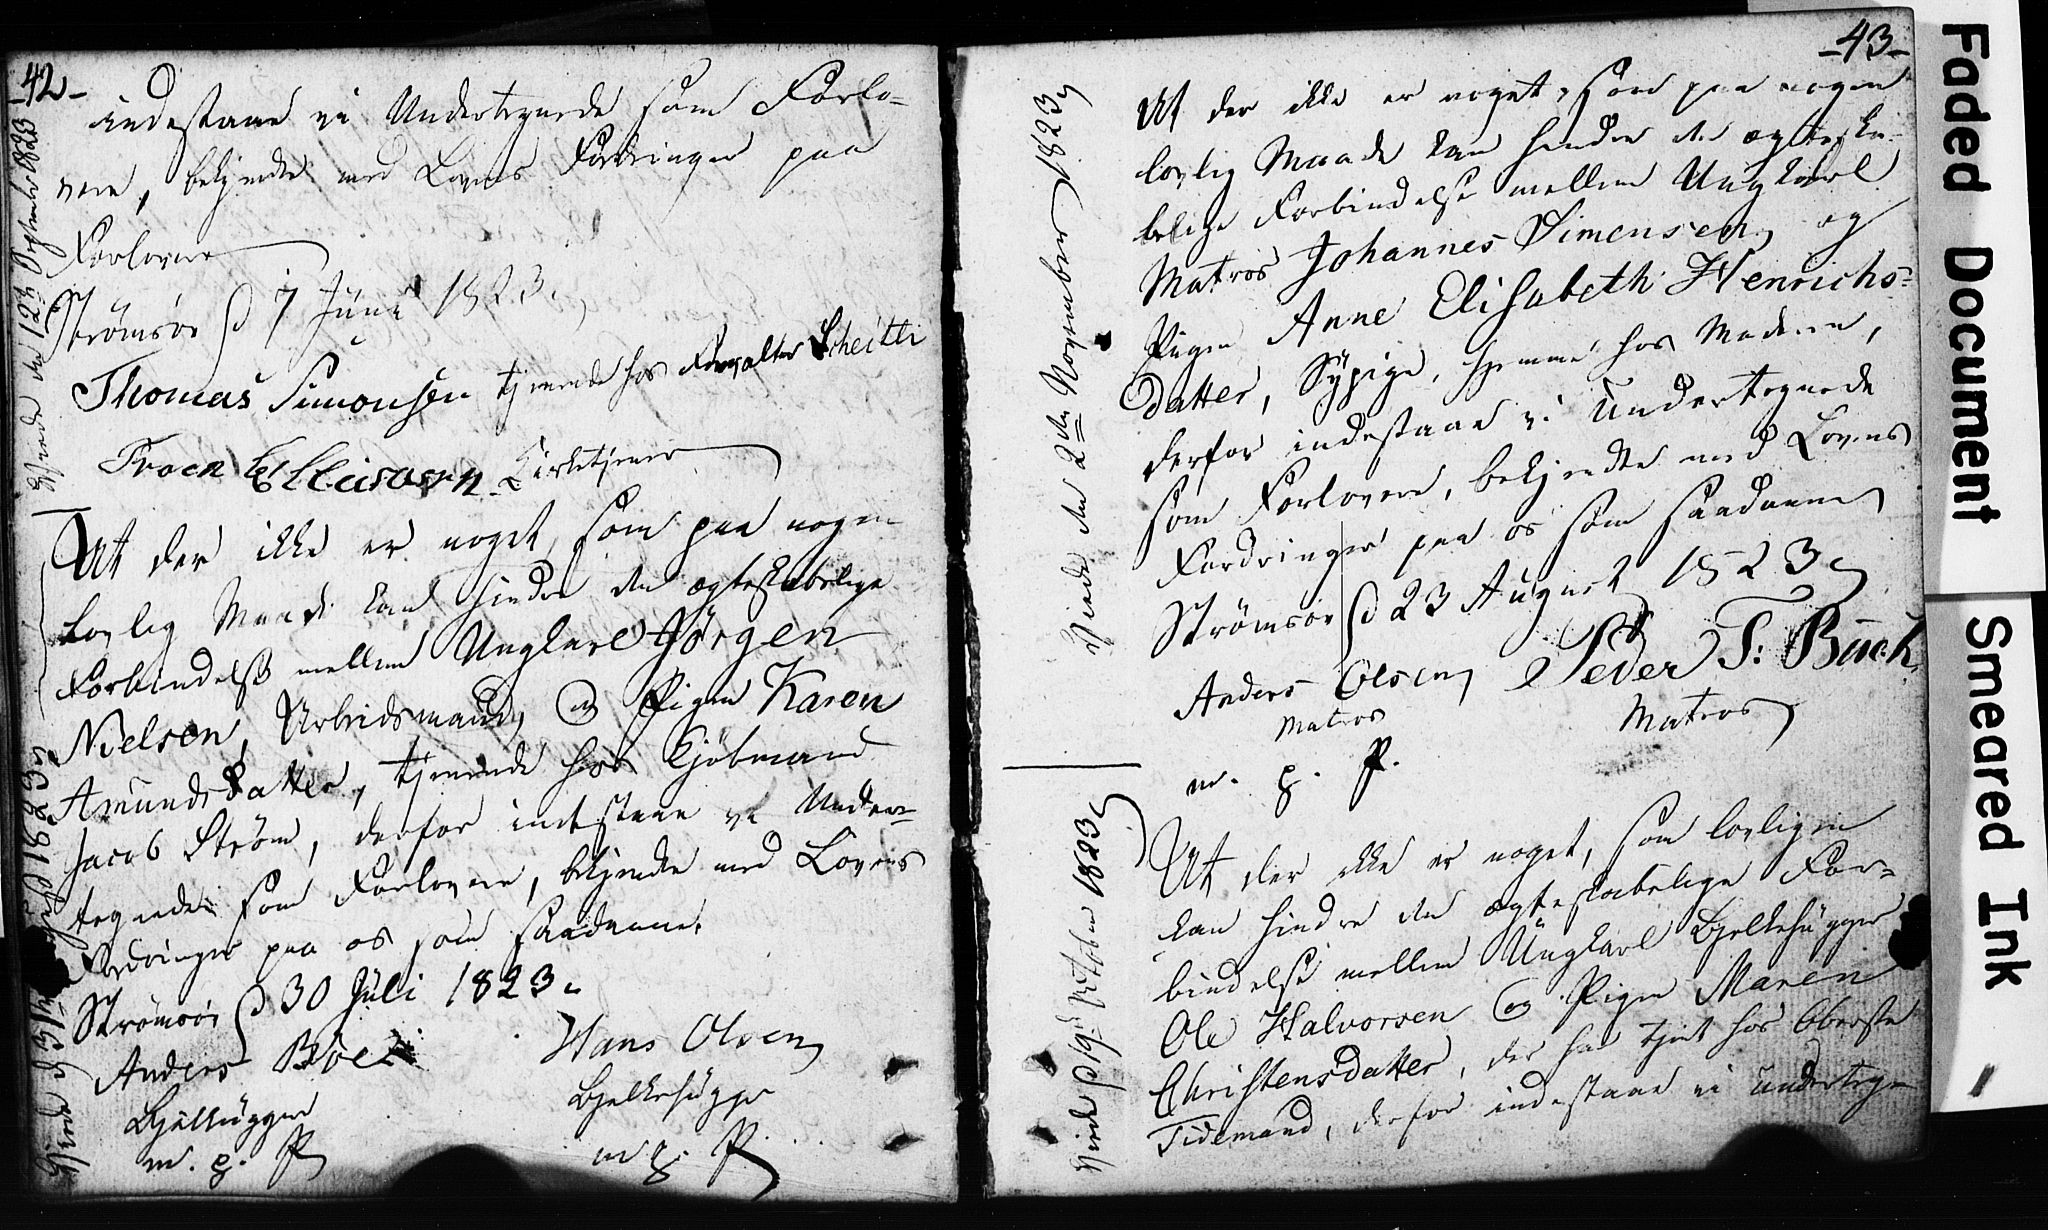 -42-
indestaae vi Undertegnede som Forlo-
vere, bekjendte med Lovens Fordringer paa
Forlovere
Strømsøe d 7 Juni 1823.
Thomas Simonsen tjenende hos Forvalter Scheitli
Troen Ellevsen Kirketjener
Viede den 12te September 1823
At der ikke er noget, som paa nogen
lovlig Maade kan hindre den ægteskabelige
Forbindelse mellem Ungkarl Jørgen
Nielsen, Arbeidsmand, og Pigen Karen
Amundsdatter, tjenende hos Kjøbmand
Jacob Strøm, derfor indestaae vi Under-
tegnede som Forlovere, bekjendte med Lovens
Fordringer paa os som saadanne.
Strømsøe d 30 Juli 1823.
Anders Böe
Bjelkehugger
m. p. P.
Hans Olsen
Bjelkehugger
m. p. P.
Viede d 31te 1823
-43-
At der ikke er noget, som paa nogen
lovlig Maade kan hindre den ægteska-
belige Forbindelse mellem Ungkarl
Matros Johannes Simensen og
Pigen Anne Elisabeth Henrichs-
datter, Sypige, hjemme hos Moderen,
derfor indestaae vi Undertegnede
som Forlovere, bekjendte med Lovens
Fordringer paa os som saadanne
Strømsøe d 23 August 1823
Anders Olsen
Matros
m. p. P.
Peder T: Buch
Matros
Viede den 2den November 1823
At der ikke er noget, som lovligen
kan hindre den ægteskabelige For-
bindelse mellem Ungkarl Bjelkehugger
Ole Halvorsen og Pigen Maren
Christensdatter, der har tjent hos Oberste
Tidemand, derfor indestaae vi undertegn
Viede d 19de October 1823
Faded Document
Smeared Ink